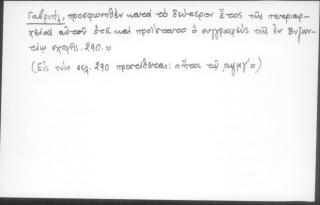 Γαβριήλ, προσφωνηθὲν κατὰ τὸ δεύτερον ἔτος τῆς πατριαρ-
χείας αὐτοῦ ὅτε καὶ προΐστατο ὁ συγγραφεὺς τῆς ἐν Βυζαν-
τίῳ σχολῆς. 290.»
(Εἰς τὴν σελ. 290 προστίθεται: «ἔτος τῷ ͵αψμγ´»)